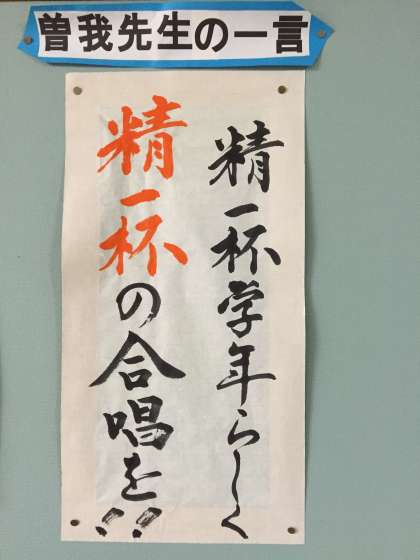 曽我先生の一言
精一杯学年らしく
精一杯の合唱を!!